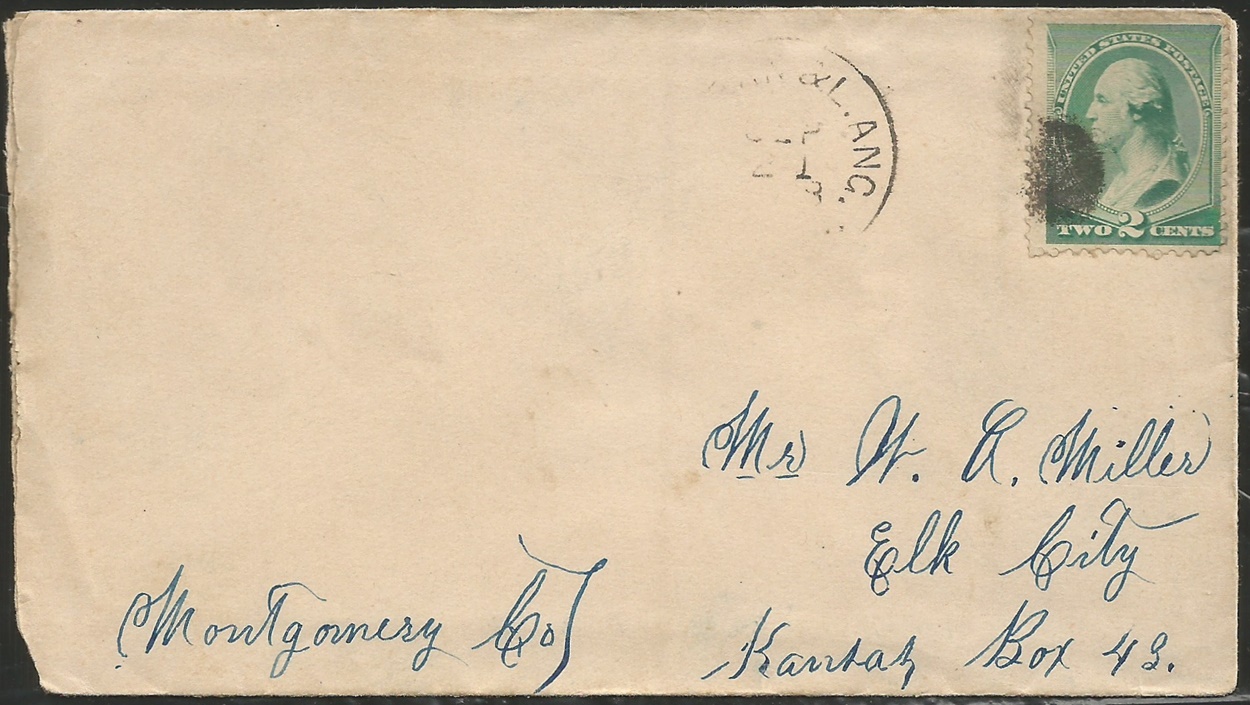 UNITED STATES POSTAGE
TWO 2 CENTS
& L. ANG.
Mr W. A. Miller
Elk City
Kansas Box 43.
Montgomery Co